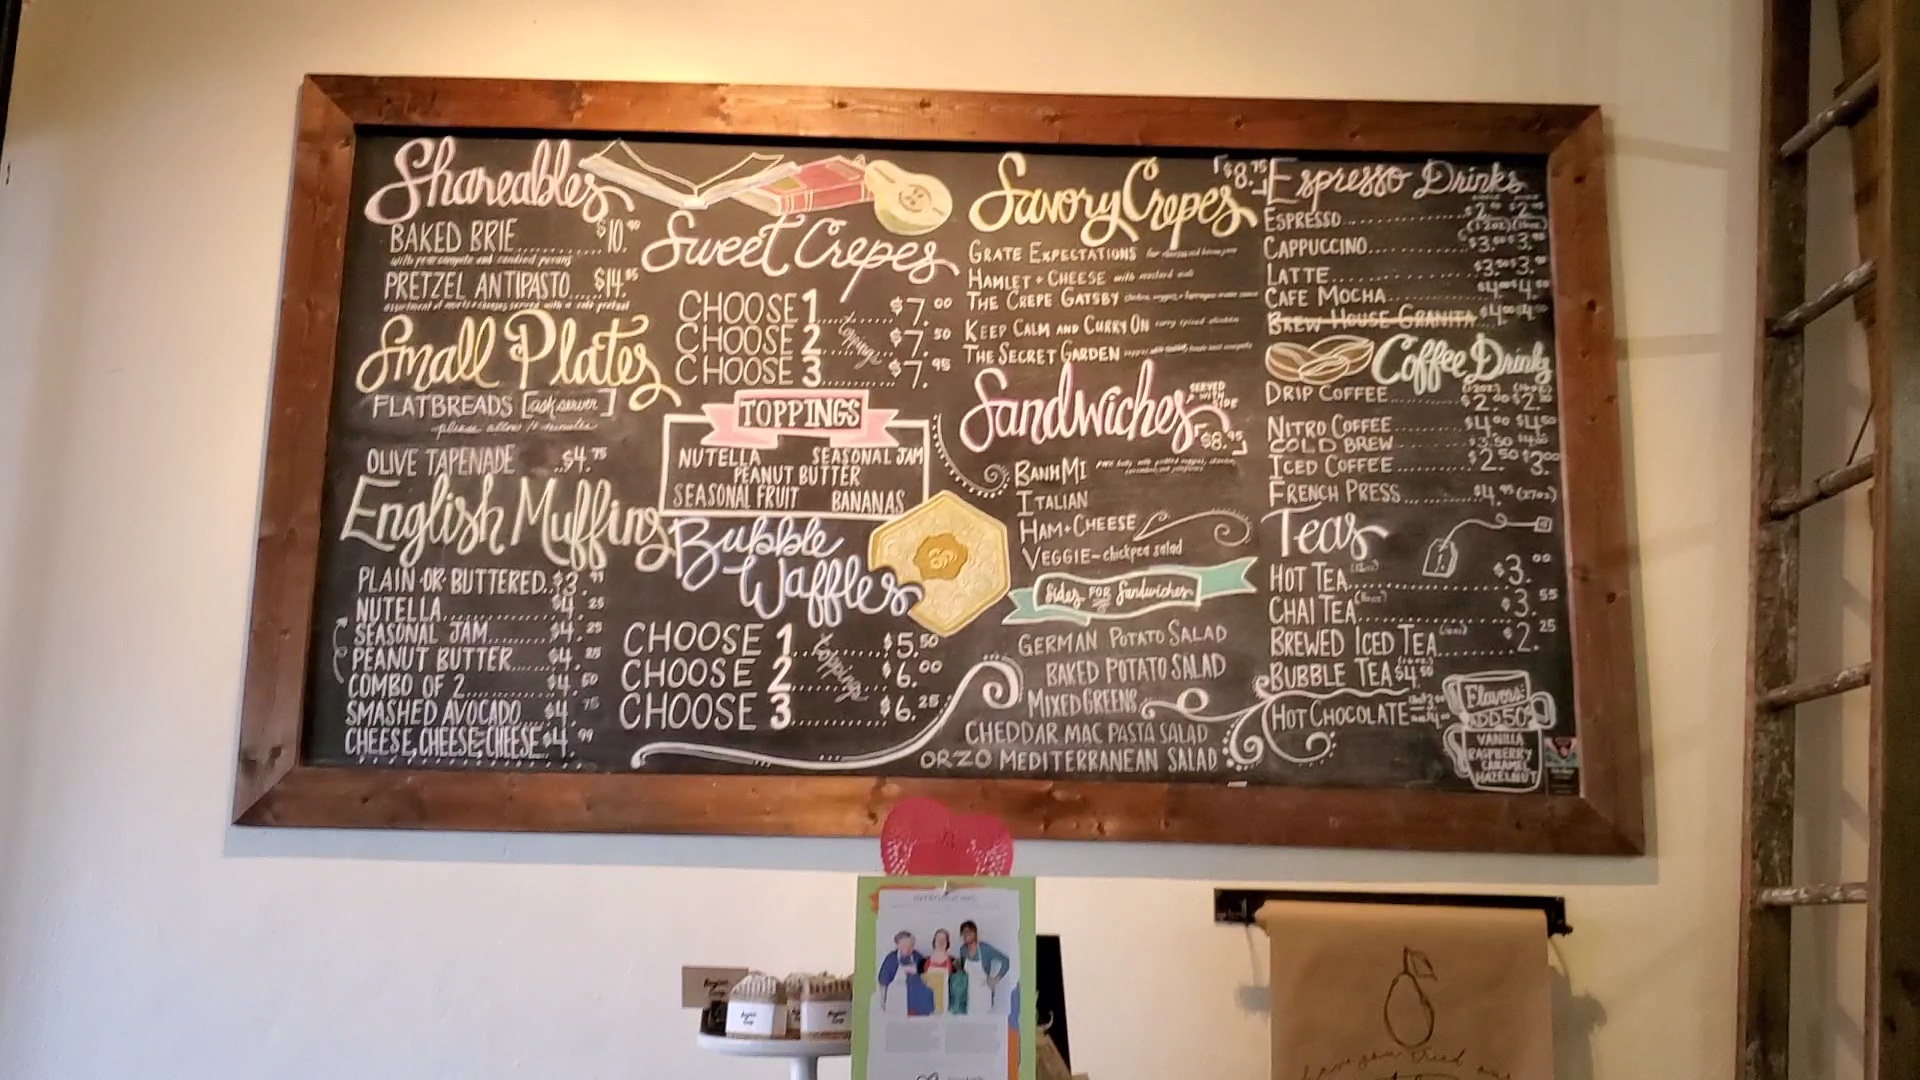 Shareables
BAKED BRIE........ $10.
with pear compote and candied pecans
PRETZEL ANTIPASTO.... $14.
assortment of meats & cheeses served with a soft pretzel
Small Plates
FLATBREADS [ask server]
please allow 10 minutes
OLIVE TAPENADE ...$4.75
English Muffins
PLAIN OR BUTTERED..$3.
NUTELLA............$4.25
SEASONAL JAM.......$4.25
PEANUT BUTTER......$4.25
COMBO OF 2.........$4.50
SMASHED AVOCADO....$4.75
CHEESE, CHEESE, CHEESE $4.99
Sweet Crepes
CHOOSE 1........$7.00
CHOOSE 2 toppings $7.50
CHOOSE 3........$7.95
TOPPINGS
NUTELLA SEASONAL JAM
PEANUT BUTTER
SEASONAL FRUIT BANANAS
Bubble
Waffles
CHOOSE 1........$5.50
CHOOSE 2 toppings $6.00
CHOOSE 3........$6.25
Savory Crepes $8.75
GRATE EXPECTATIONS
HAMLET + CHEESE with mustard
THE CREPE GATSBY
KEEP CALM AND CURRY ON curry spiced chicken
THE SECRET GARDEN
Sandwiches SERVED WITH SIDE $8.95
BANH MI
ITALIAN
HAM + CHEESE
VEGGIE - chickpea salad
Sides FOR Sandwiches
GERMAN POTATO SALAD
BAKED POTATO SALAD
MIXED GREENS
CHEDDAR MAC PASTA SALAD
ORZO MEDITERRANEAN SALAD
Espresso Drinks
ESPRESSO........ $2. $2.
CAPPUCCINO...... $3. $3.
LATTE........... $3. $3.
CAFE MOCHA...... $4. $4.
BREW HOUSE GRANITA $4. $4.
Coffee Drinks
DRIP COFFEE..... $2. $2.
NITRO COFFEE.... $4.00 $4.50
COLD BREW....... $3.50 $4.00
ICED COFFEE..... $2.50 $3.00
FRENCH PRESS.... $4.95 (27oz)
Teas
HOT TEA......... $3.00
CHAI TEA........ $3.55
BREWED ICED TEA. $2.25
BUBBLE TEA $4.50
HOT CHOCOLATE
Flavors:
ADD 50¢
VANILLA
RASPBERRY
CARAMEL
HAZELNUT
INTRODUCING
have you tried our